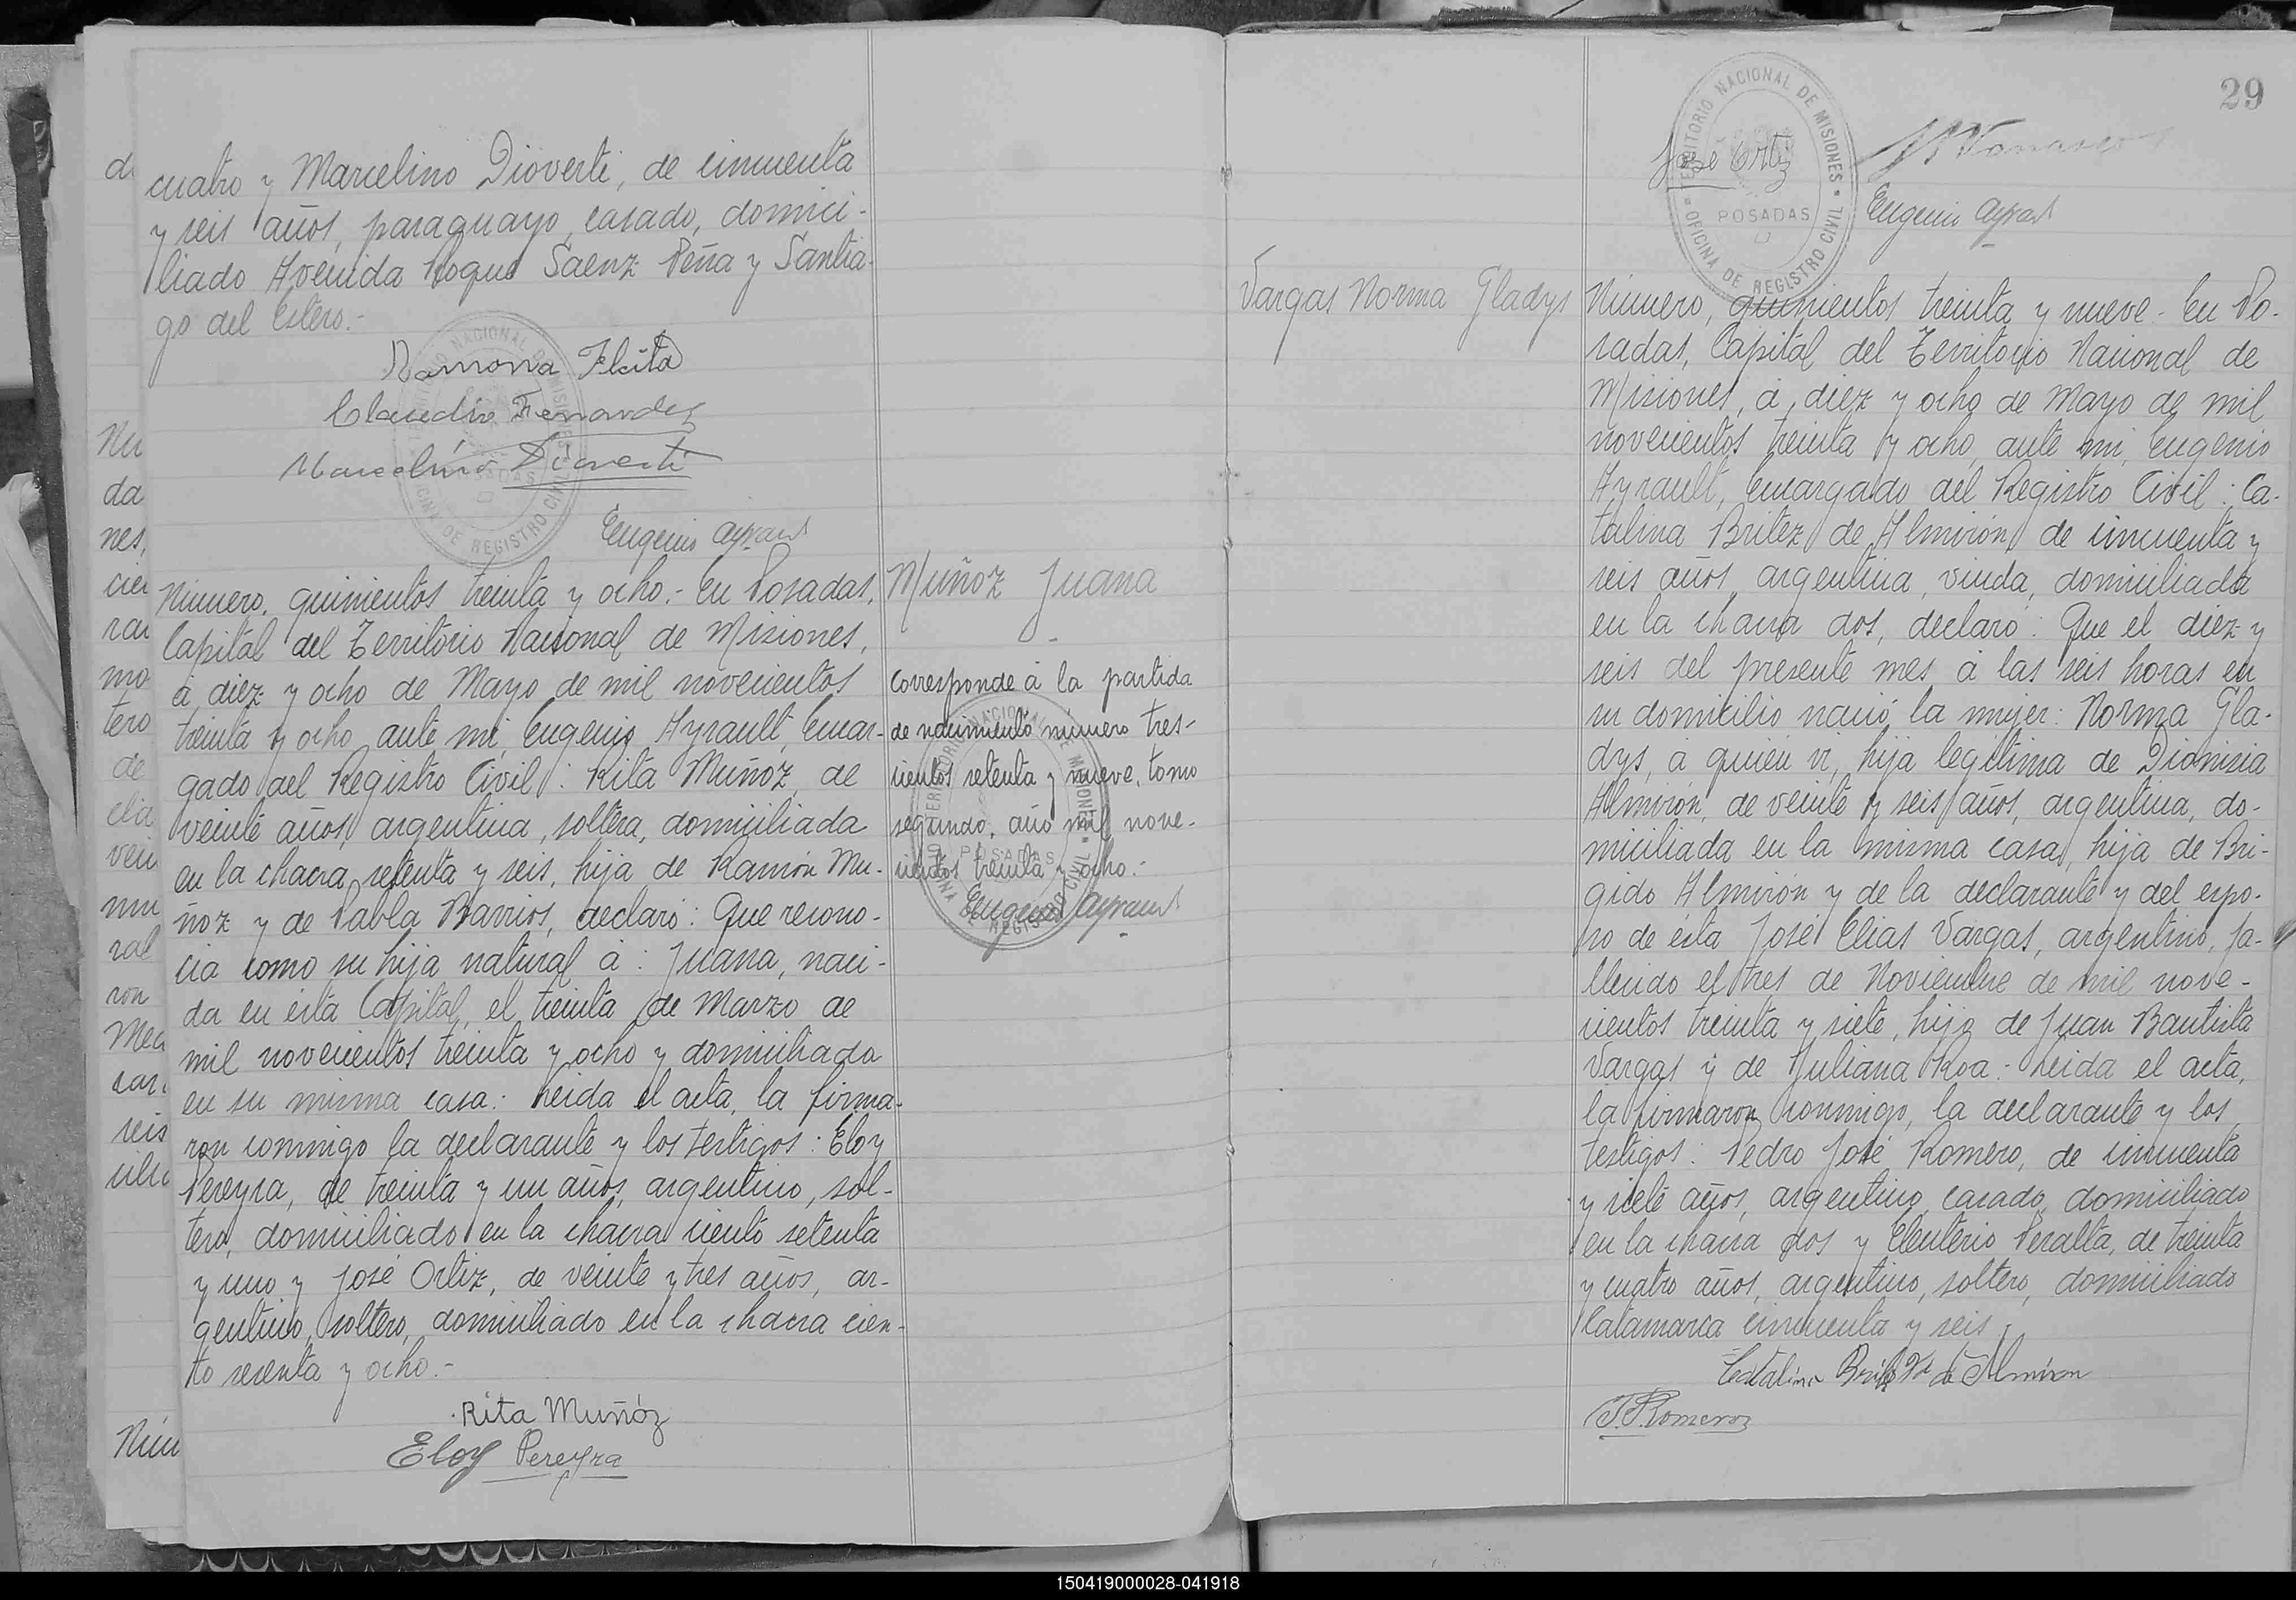 cuatro y Marcelino Dioverti, de cincuenta
y seis años, paraguayo, casado, domici-
liado Avenida Roque Saenz Peña y Santia-
go del Estero.-
Ramona Fleita
Claudio Fernandez
Marcelino Dioverti
Eugenio Ayrault
Número, quinientos treinta y ocho.- En Posadas,
Capital del Territorio Nacional de Misiones,
á diez y ocho de Mayo de mil novecientos
treinta y ocho, ante mi, Eugenio Ayrault, Encar-
gado del Registro Civil: Rita Muñoz, de
veinte años, argentina, soltera, domiciliada
en la chacra setenta y seis, hija de Ramón Mu-
ñoz y de Pabla Barrios, declaró: Que recono-
cia como su hija natural á: Juana, naci-
da en ésta Capital, el treinta de Marzo de
mil novecientos treinta y ocho y domiciliada
en su misma casa.- Leida el acta, la firma-
ron conmigo la declarante y los testigos: Eloy
Pereyra, de treinta y un años, argentino, sol-
tero, domiciliado en la chacra ciento setenta
y uno y José Ortiz, de veinte y tres años, ar-
gentino, soltero, domiciliado en la chacra cien-
to sesenta y ocho.-
Rita Muñóz
Eloy Pereyra
Muñoz Juana
Corresponde á la partida
de nacimiento número tres-
cientos setenta y nueve, tomo
segundo, año mil nove-
cientos treinta y ocho.-
Eugenio Ayrault
TERRITORIO NACIONAL DE MISIONES
POSADAS
OFICINA DE REGISTRO CIVIL
29
José Ortiz
Eugenio Ayrault
Vargas Norma Gladys
Número, quinientos treinta y nueve.- En Po-
sadas, Capital del Territorio Nacional de
Misiones, á diez y ocho de Mayo de mil
novecientos treinta y ocho, ante mi, Eugenio
Ayrault, Encargado del Registro Civil: Ca-
talina Britez de Almirón, de cincuenta y
seis años, argentina, viuda, domiciliada
en la chacra dos, declaró: Que el diez y
seis del presente mes á las seis horas en
su domicilio nació la mujer: Norma Gla-
dys, á quien vi, hija legitima de Dionisia
Almirón, de veinte y seis años, argentina, do-
miciliada en la misma casa, hija de Bri-
gido Almirón y de la declarante y del espo-
so de ésta José Elias Vargas, argentino, fa-
llecido el tres de Noviembre de mil nove-
cientos treinta y siete, hijo de Juan Bautista
Vargas y de Juliana Roa.- Leida el acta,
la firmaron conmigo, la declarante y los
testigos: Pedro José Romero, de cincuenta
y siete años, argentino, casado, domiciliado
en la chacra dos y Eleuterio Peralta, de treinta
y cuatro años, argentino, soltero, domiciliado
Catamarca cincuenta y seis.-
Catalina Britez Vd de Almiron
P. J. Romero
150419000028-041918